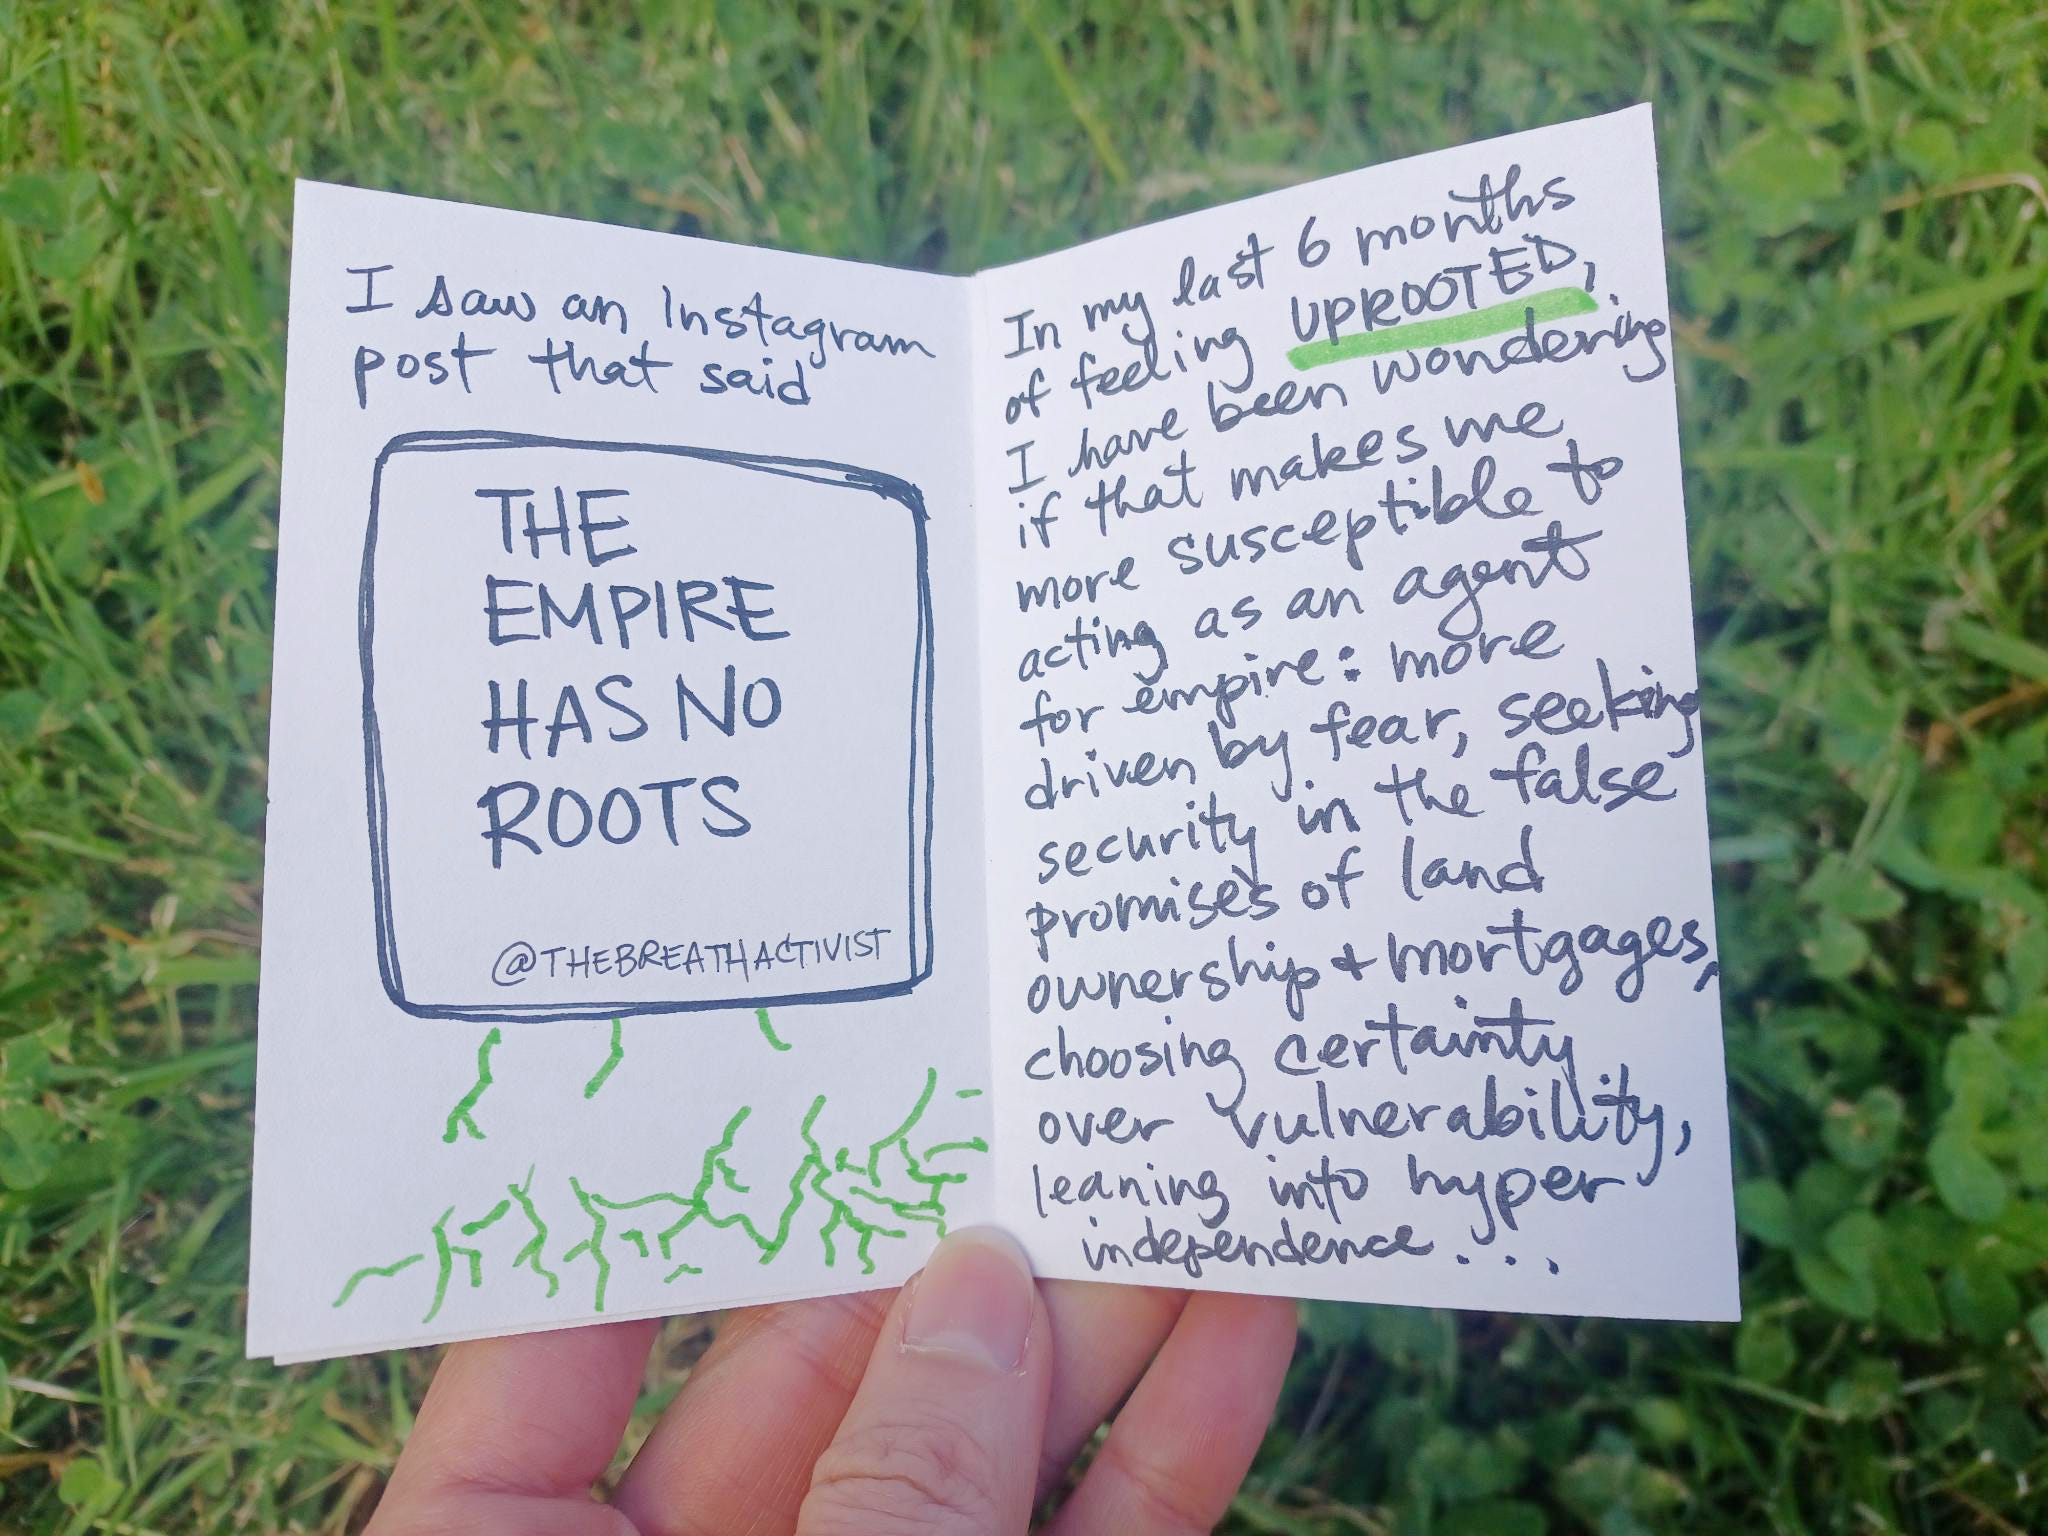 I saw an Instagram
post that said
THE
EMPIRE
HAS NO
ROOTS
@THEBREATHACTIVIST
In my last 6 months
of feeling UPROOTED,
I have been wondering
if that makes me
more susceptible to
acting as an agent
for empire: more
driven by fear, seeking
security in the false
promises of land
ownership + mortgages,
choosing certainty
over vulnerability,
leaning into hyper
independence...